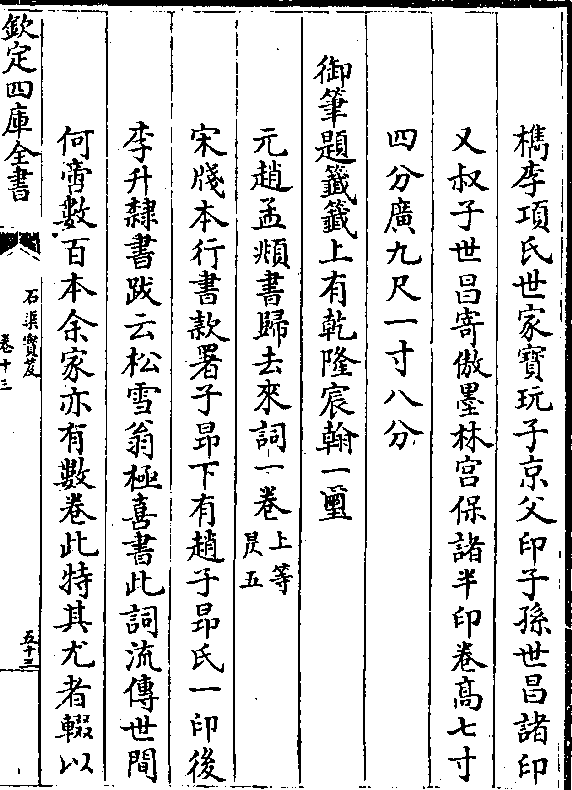 檇李項氏世家寶玩子京父印子孫世昌諸印
又叔子世昌寄傲墨林宮保諸半印卷高七寸
四分廣九尺一寸八分
御筆題籤籤上有乾隆宸翰一璽
元趙孟頫書歸去來詞一卷上等
昃五
宋牋本行書款署子昂下有趙子昂氏一印後
李升隸書跋云松雪翁極喜書此詞流傳世間
何啻數百本余家亦有數卷此特其尤者輟以
欽定四庫全書
石渠寶笈
卷十三
五十三